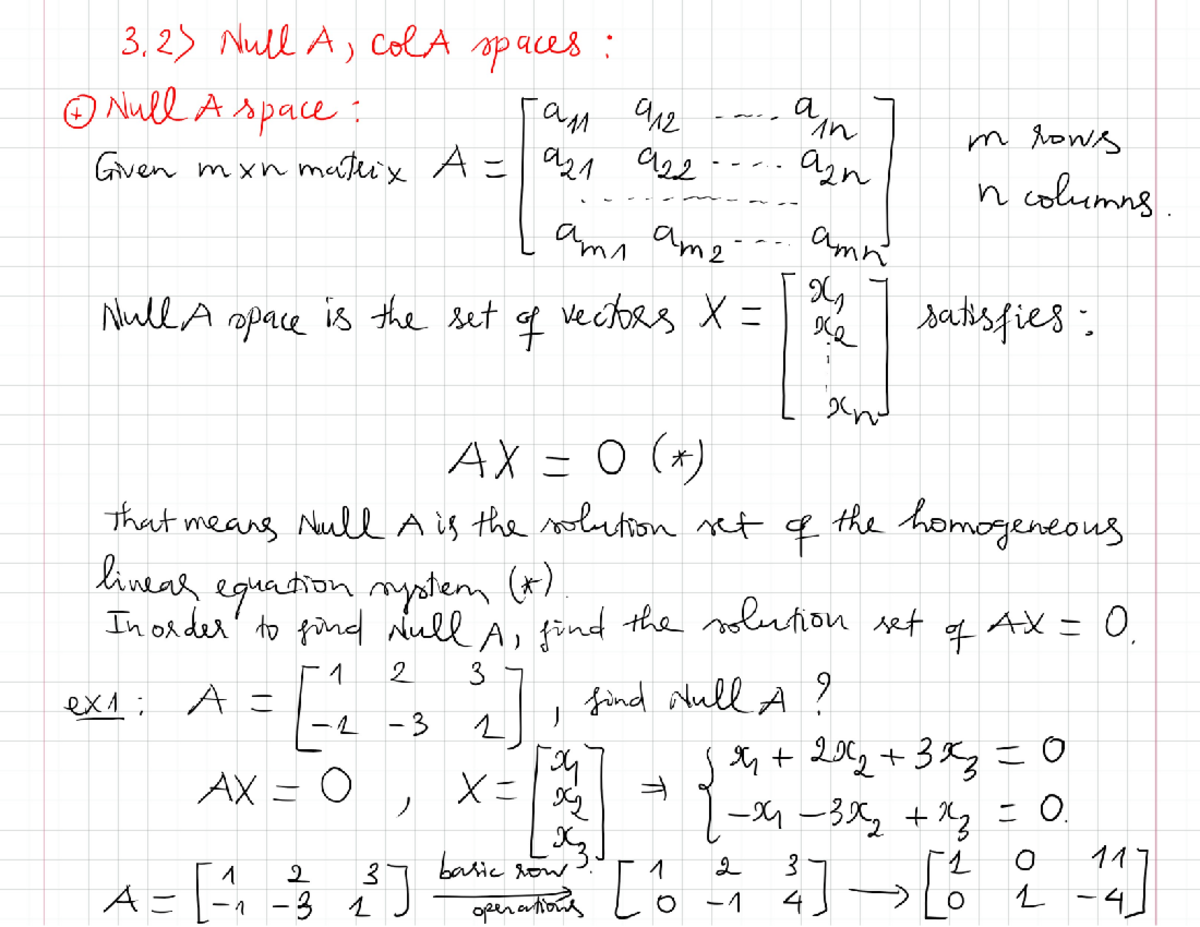 3.2> Null A, Col A spaces :
⊕ Null A space :
Given m×n matrix A = [a11 a12 ..... a1n; a21 a22 ..... a2n; ..........; am1 am2 .... amn] m rows n columns.
Null A space is the set of vectors X = [x1; x2; ⋮; xn] satisfies :
AX = 0 (*)
That means Null A is the solution set of the homogeneous
linear equation system (*).
In order to find Null A, find the solution set of AX = 0.
ex1 : A = [1 2 3; -1 -3 1], find Null A ?
AX = 0 , X = [x1; x2; x3] ⇒ { x1 + 2x2 + 3x3 = 0; -x1 - 3x2 + x3 = 0.
A = [1 2 3; -1 -3 1] basic row operations → [1 2 3; 0 -1 4] → [1 0 11; 0 1 -4]